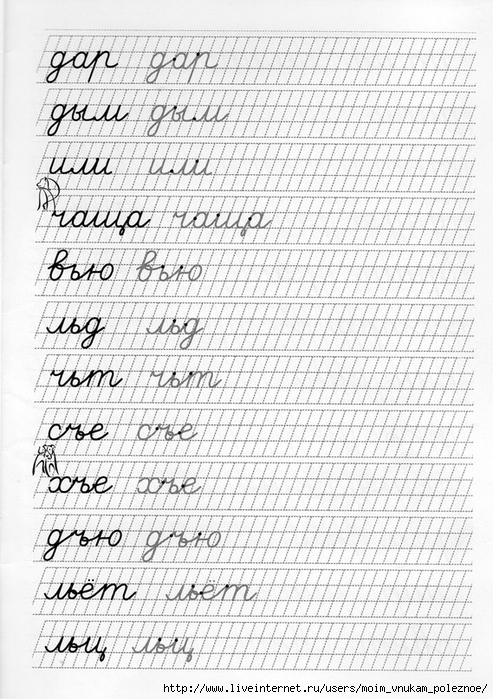 дар дар
дым дым
или или
чаща чаща
вью вью
льд льд
чьт чьт
съе съе
хъе хъе
дъю дъю
льёт льёт
льц льц
http://www.liveinternet.ru/users/moim_vnukam_poleznoe/